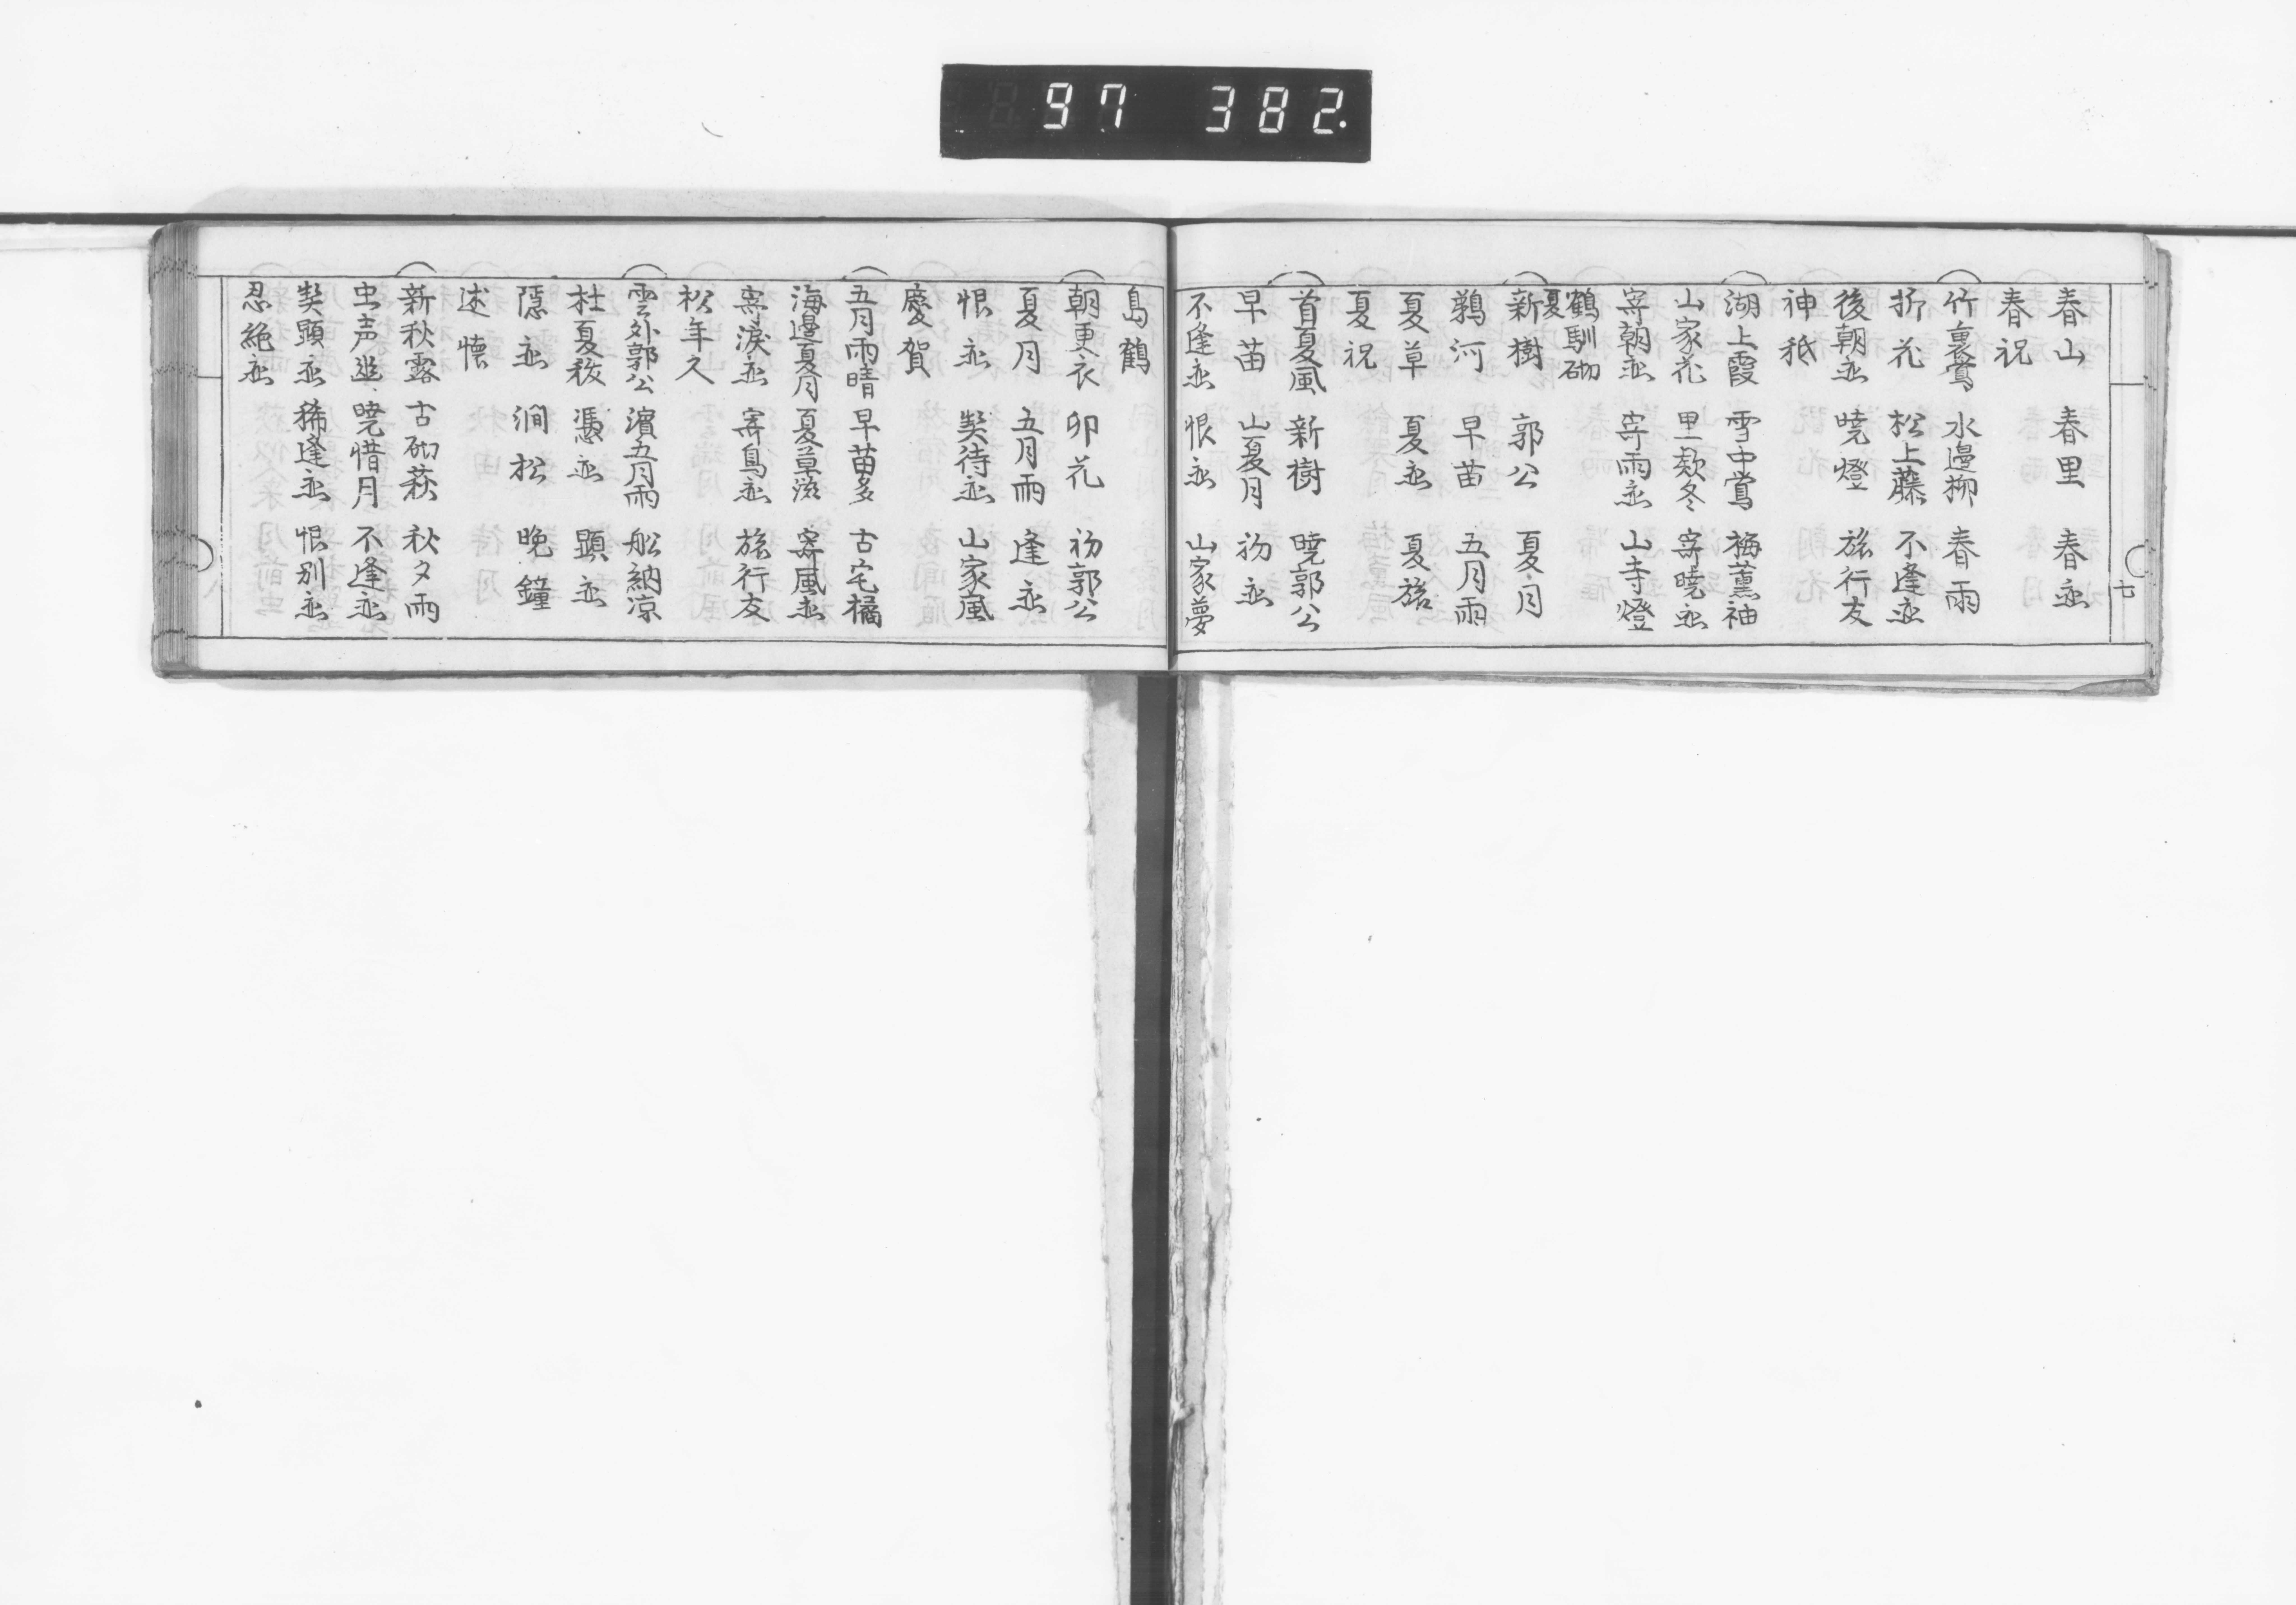 97 382.
春山 春里 春恋
春祝
竹裏鶯 水邊柳 春雨
折花 松上藤 不逢恋
後朝恋 暁燈 旅行友
神祇
湖上霞 雪中鶯 梅薫袖
山家花 里款冬 寄暁恋
寄朝恋 寄雨恋 山寺燈
鶴馴砌
夏
新樹 郭公 夏月
鵜河 早苗 五月雨
夏草 夏恋 夏旅
夏祝
首夏風 新樹 暁郭公
早苗 山夏月 初恋
不逢恋 恨恋 山家夢
七
島鶴
朝更衣 卯花 初郭公
夏月 五月雨 逢恋
恨恋 契待恋 山家風
慶賀
五月雨晴 早苗多 古宅橘
海邊夏月 夏草滋 寄風恋
寄涙恋 寄鳥恋 旅行友
松年久
雲外郭公 濱五月雨 船納凉
杜夏秡 憑恋 顕恋
隠恋 澗松 晩鐘
述懐
新秋露 古砌萩 秋夕雨
虫声滋 暁惜月 不逢恋
契顕恋 稀逢恋 恨別恋
忍絶恋